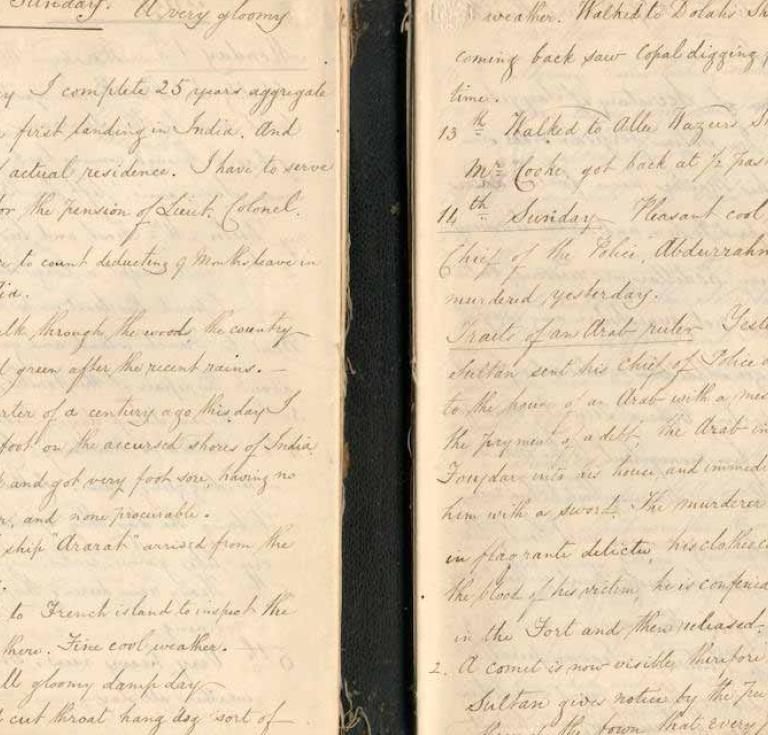 Sunday. A very gloomy
I complete 25 years aggregate
first landing in India. And
actual residence. I have to serve
for the pension of Lieut. Colonel.
to count deducting 9 Months leave in
through the woods the country
green after the recent rains. —
of a century ago this day I
foot on the accursed shores of India
and got very foot sore having no
and none procurable.
ship "Ararat" arrived from the
to French island to inspect the
there. Fine cool weather.
gloomy damp day
cut throat hang dog sort of
weather. Walked to
coming back saw Copal digging
time.
13th Walked to
Mr. Cooke, got back at ½ past
14th Sunday Pleasant cool
Chief of the Police,
murdered yesterday.
Traits of an Arab ruler
Sultan sent his Chief of Police
to the house of an Arab with a
the payment of a debt, the Arab
into his house and
him with a sword. The murderer
in flagrante delictu, his clothes
the blood of his victim, he is confined
in the Fort and then released.
2. A comet is now visible, therefore
Sultan gives notice by the
the town that every